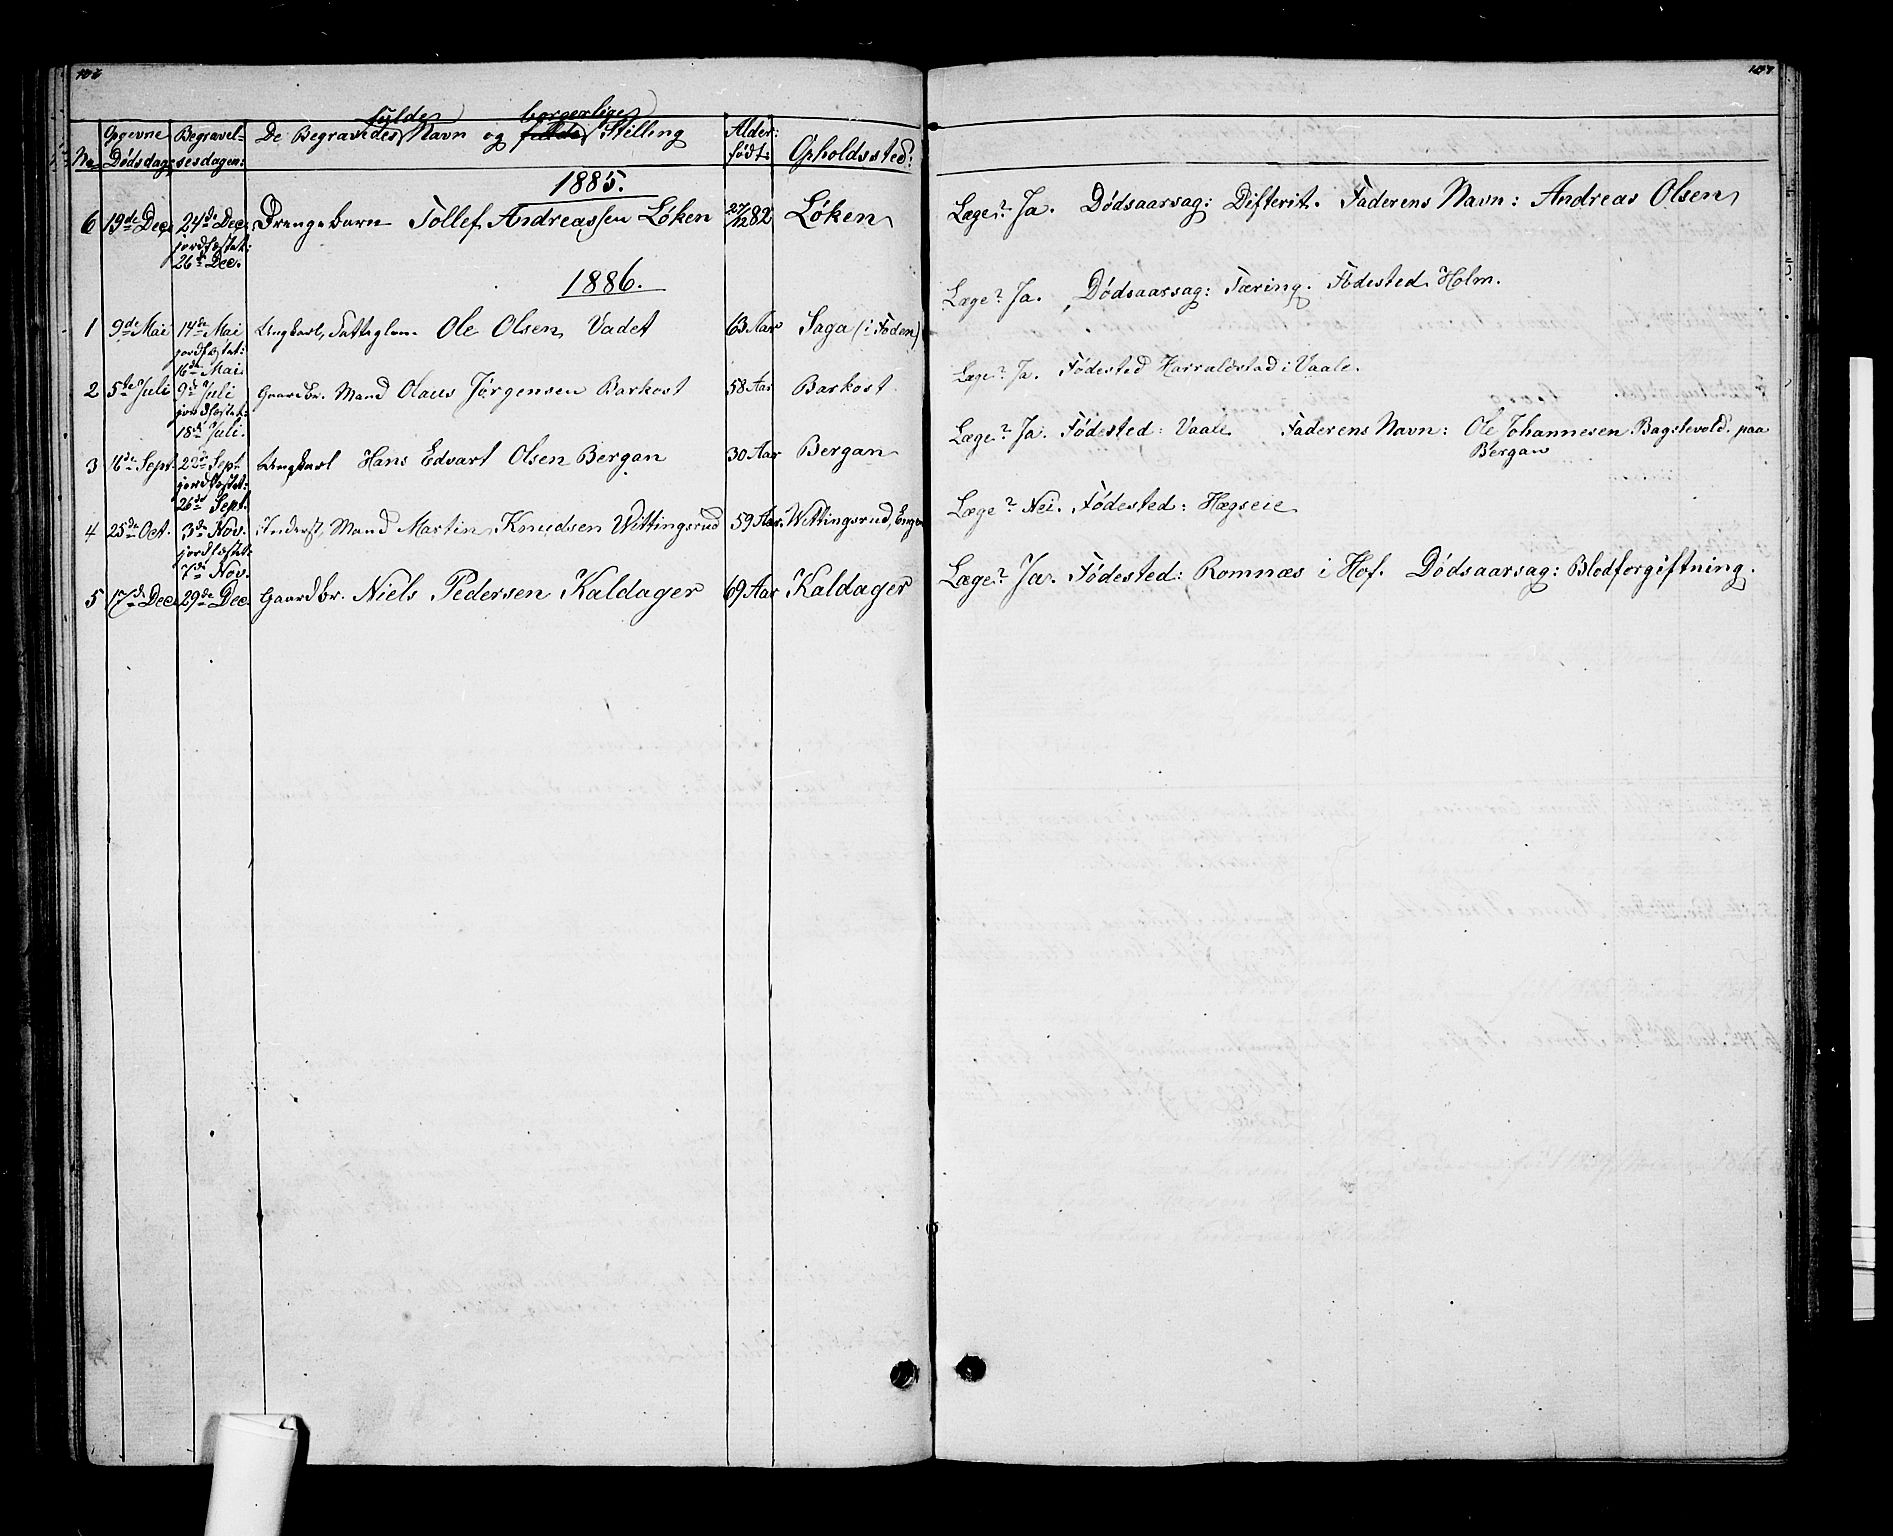 106
107
fulde borgerlige
No. Opgevne Dødsdag: Begravelsesdagen: De Begravedes Navn og fulde Stilling Alder: født: Opholdssted:
1885.
6 19de Dec. 27de Dec. Drengebarn Tollef Andreassen Løken 27/12 82 Løken Læge? Ja. Dødsaarsag: Difterit. Faderens Navn: Andreas Olsen
jordfæstet:
26de Dec.
1886.
1 9de Mai 14de Mai Ungkarl, Fattiglem. Ole Olsen Vadet 63 Aar Saga (i Foden) Læge? Ja. Dødsaarsag: Tæring. Fødested Holm.
jordfæstet:
16de Mai
2 5te Juli 9de Juli Gaardbr. Mand Olaus Jørgensen Barkost 58 Aar Barkost Læge? Ja. Fødested Harraldstad i Vaale.
jordfæstet:
18de Juli.
3 16de Sept. 22de Sept. Ungkarl Hans Edvart Olsen Bergan 30 Aar Bergan Læge? Ja. Fødested: Vaale Faderens Navn: Ole Johannesen Bagstevold. paa
Bergan
jordfæstet:
26de Sept.
4 25de Oct. 3de Nov. Inderst, Mand Martin Knudsen Wittingsrud 59 Aar. Wittingsrud, Engen Læge? Nei. Fødested: Hægseie
jordfæstet:
7de Nov.
5 17de Dec. 29de Dec. Gaardbr. Niels Pedersen Kaldager 69 Aar Kaldager Læge? Ja. Fødested: Romnæs i Hof. Dødsaarsag: Blodforgiftning.